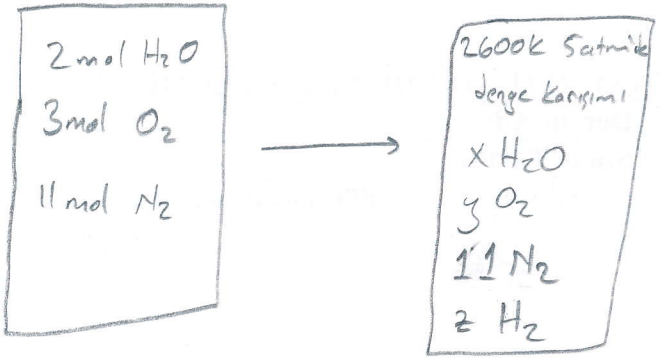 2 mol H₂O
3 mol O₂
11 mol N₂
2600K 5atm'de
denge karışımı
x H₂O
y O₂
11 N₂
z H₂